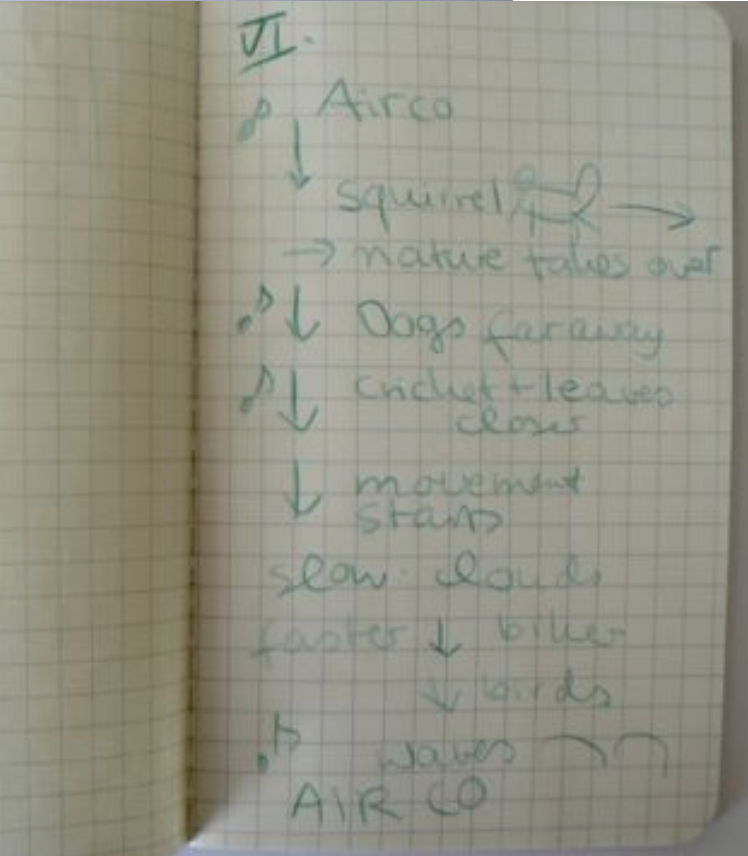 VI.
♪ Airco
↓
squirrel →
→ nature takes over
♪ ↓ Dogs far away
♪ ↓ cricket + leaves
closer
↓ movement
starts
slow. clouds
faster ↓ biker
↓ birds
♪ waves
AIRCO